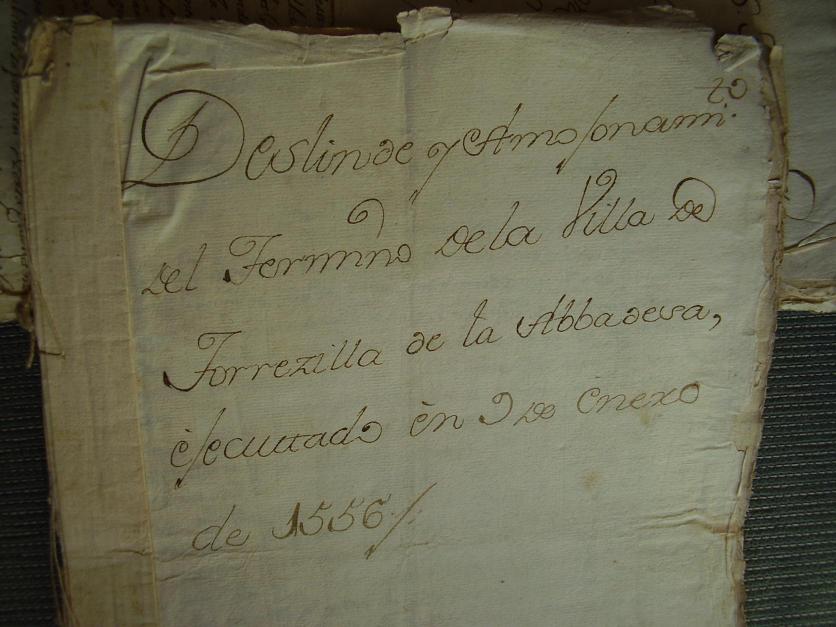 Deslinde y Amojonami.to
del Termino de la Villa de
Torrezilla de la Abbadesa,
èjecuttado èn 9 de Enero
de 1556/